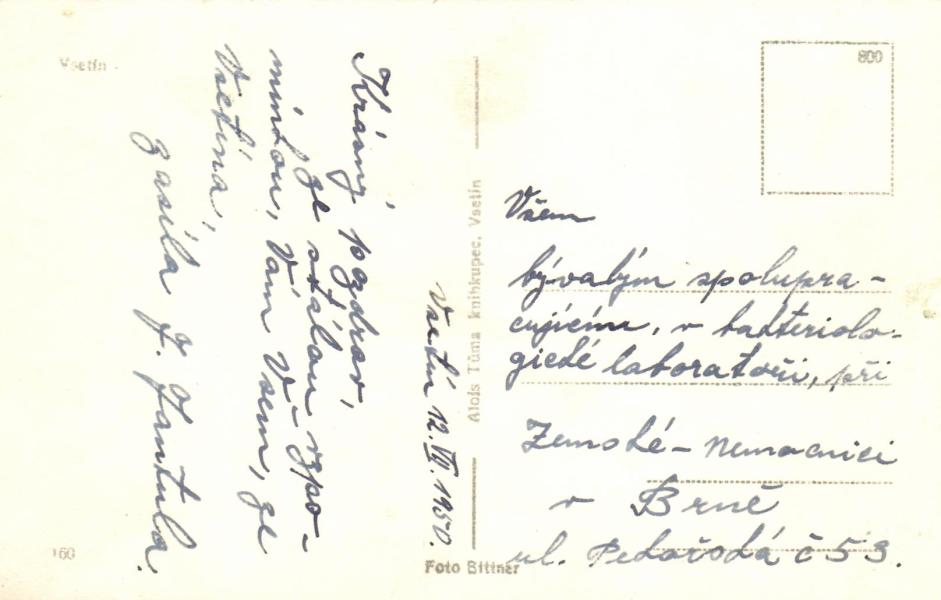 Vsetín
Krásný pozdrav,
ze stálou vzpo-
mínkou, Vám Všem, ze
Vsetína,
zasíla J. Jantula.
Vsetín 12. VII. 1950.
160
Alois Tůma knihkupec, Vsetín
Foto Bittner
800
Všem
bývalým spolupra-
cujícím, v bakteriolo-
gické laboratoři, při
Zemské-nemocnici
v Brně
ul. Pekařská č 53.